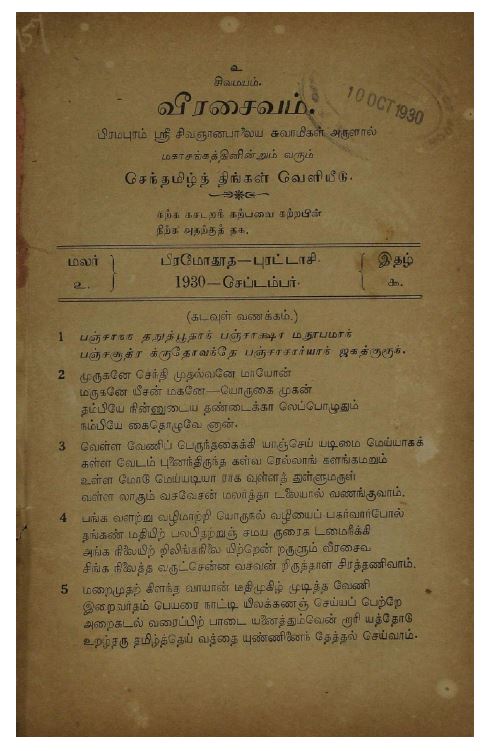 157
உ
சிவமயம்.
வீரசைவம்.
10 OCT 1930
பிரமபுரம் ஸ்ரீ சிவஞானபாலைய சுவாமிகள் அருளால்
மகாசங்கத்தினின்றும் வரும்
செந்தமிழ்த் திங்கள் வெளியீடு.
கற்க கசடறக் கற்பவை கற்றபின்
நிற்க அதற்குத் தக.
மலர் உ.
பிரமோதூத—புரட்டாசி.
1930—செப்டம்பர்.
இதழ் ௬.
(கடவுள் வணக்கம்.)
1 பஞ்சாநந பஞ்சாக்ஷர
பஞ்சசூத்ர பஞ்சாசார்யாந் ஜகத்குரூந்.
2 முருகனே செந்தி முதல்வனே மாயோன்
மருகனே யீசன் மகனே—யொருகை முகன்
தம்பியே நின்னுடைய தண்டைக்கா லெப்பொழுதும்
நம்பியே கைதொழுவே னான்.
3 வெள்ள வேணிப் பெருந்தகைக்கி யாஞ்செய் யடிமை மெய்யாகக்
கள்ள வேடம் புனைந்திருந்த கள்வ ரெல்லாங் களங்கமறும்
உள்ள மோடு மெய்யடியா ராக வுள்ளத் துள்ளுமருள்
வள்ள லாகும் வசவேசன் மலர்த்தா டலையால் வணங்குவாம்.
4 பங்க வளற்று வழிமாற்றி யொருநல் வழியைப் பகர்வார்போல்
தங்கண் மதியிற் பலபிதற்றுஞ் சமய ருரைக டமைநீக்கி
அங்க நிலையிற் றிலிங்கநிலை யிற்றென் றருளும் வீரசைவ
சிங்க நிலைத்த வருட்சென்ன வசவன் றிருத்தாள் சிரத்தணிவாம்.
5 மறைமுதற் கிளந்த வாயான் மதிமுகிழ் முடித்த வேணி
இறைவர்தம் பெயரை நாட்டி யிலக்கணஞ் செய்யப் பெற்றே
அறைகடல் வரைப்பிற் பாடை யனைத்தும்வென் றாரி யத்தோடு
உறழ்தரு தமிழ்த்தெய் வத்தை யுண்ணினைந் தேத்தல் செய்வாம்.